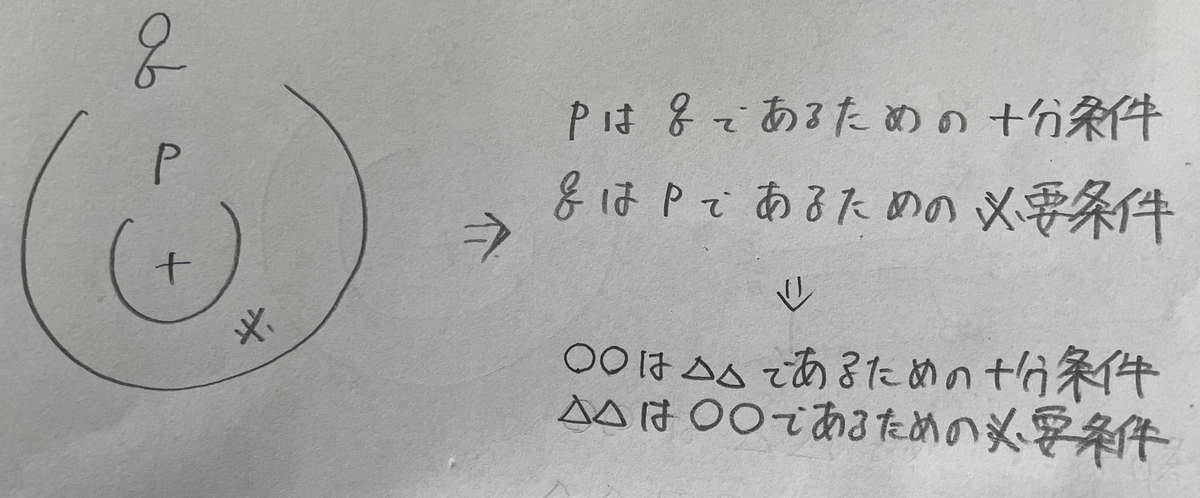 q
P
十
必
⇒
Pは qであるための 十分条件
qは Pであるための 必要条件
⇓
○○は△△であるための十分条件
△△は○○であるための必要条件